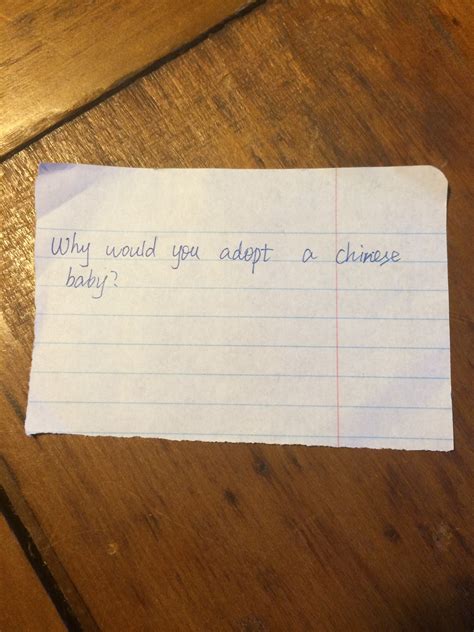 Why would you adopt a chinese
baby?